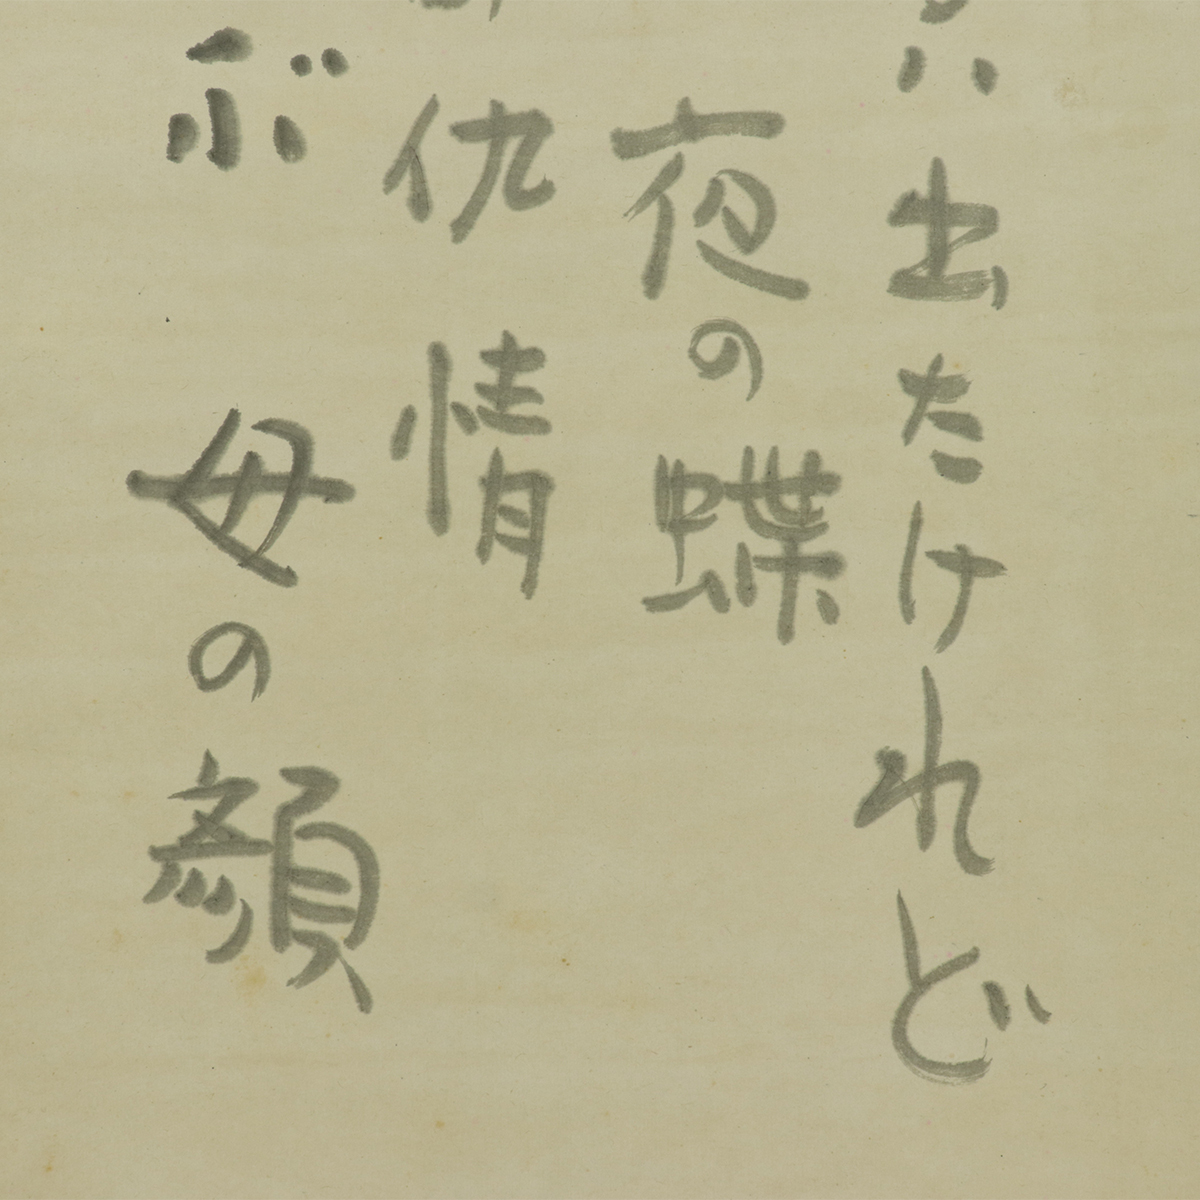 ハ出たけれど
夜の蝶
仇情
ぶ母の顔